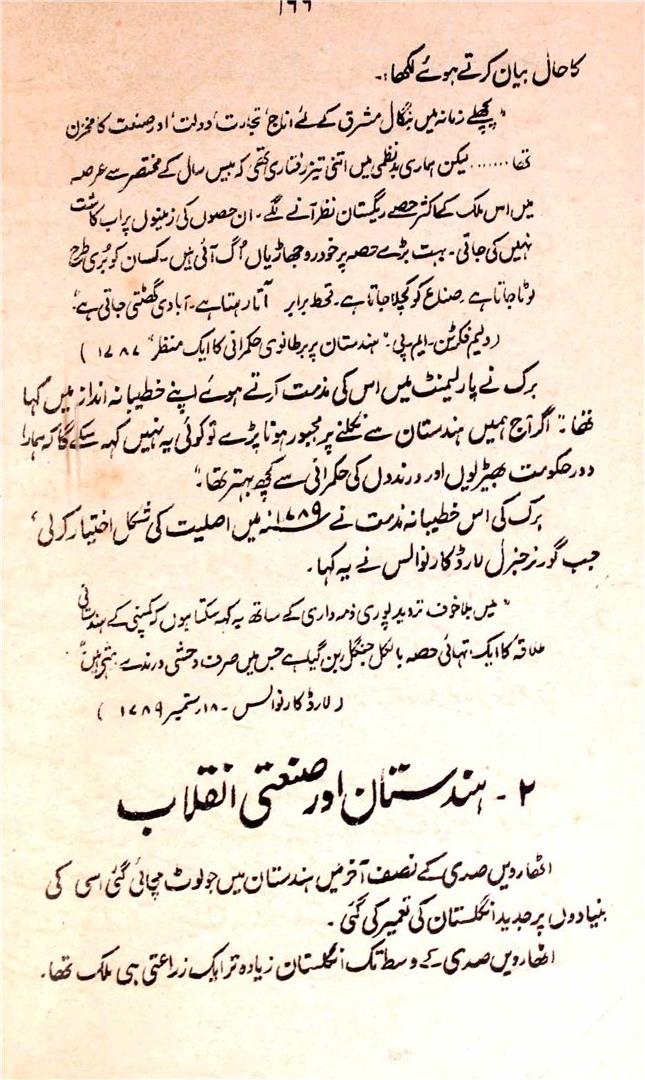 ۱۶۶
کا حال بیان کرتے ہوئے لکھا:۔
"پچھلے زمانہ میں بنگال مشرق کے لئے اناج' تجارت' دولت' اور صنعت کا مخزن
تھا ....... لیکن ہماری بدنظمی میں اتنی تیز رفتاری تھی کہ بیس سال کے مختصر سے عرصہ
میں اس ملک کے اکثر حصے ریگستان نظر آنے لگے۔ ان حصوں کی زمینوں پر اب کاشت
نہیں کی جاتی۔ بہت بڑے حصہ پر خود رو جھاڑیاں اُگ آئی ہیں۔ کسان کو بُری طرح
لوٹا جاتا ہے۔ صناع کو کچلا جاتا ہے۔ قحط برابر آتا رہتا ہے۔ آبادی گھٹتی جاتی ہے"
(ولیم فکرٹن۔ ایم۔ پی۔ "ہندستان پر برطانوی حکمرانی کا ایک منظر" ۱۷۸۷)
برک نے پارلیمنٹ میں اس کی مذمت کرتے ہوئے اپنے خطیبانہ انداز میں کہا
تھا۔ "اگر آج ہمیں ہندستان سے نکلنے پر مجبور ہونا پڑے تو کوئی یہ نہیں کہہ سکے گا کہ ہمارا
دور حکومت بھیڑیوں اور درندوں کی حکمرانی سے کچھ بہتر تھا۔"
برک کی اس خطیبانہ مذمت نے ۱۷۸۹ء میں اصلیت کی شکل اختیار کر لی'
جب گورنر جنرل لارڈ کارنوالس نے یہ کہا۔
"میں بلا خوف تردید پوری ذمہ داری کے ساتھ یہ کہہ سکتا ہوں کہ کمپنی کے ہندستانی
علاقہ کا ایک تہائی حصہ بالکل جنگل بن گیا ہے جس میں صرف وحشی درندے بستے ہیں"
(لارڈ کارنوالس ۔ ۱۸ ستمبر ۱۷۸۹)
۲ ۔ ہندستان اور صنعتی انقلاب
اٹھارویں صدی کے نصف آخر میں ہندستان میں جو لوٹ مچائی گئی اسی کی
بنیادوں پر جدید انگلستان کی تعمیر کی گئی۔
اٹھارویں صدی کے وسط تک انگلستان زیادہ تر ایک زراعتی ہی ملک تھا۔